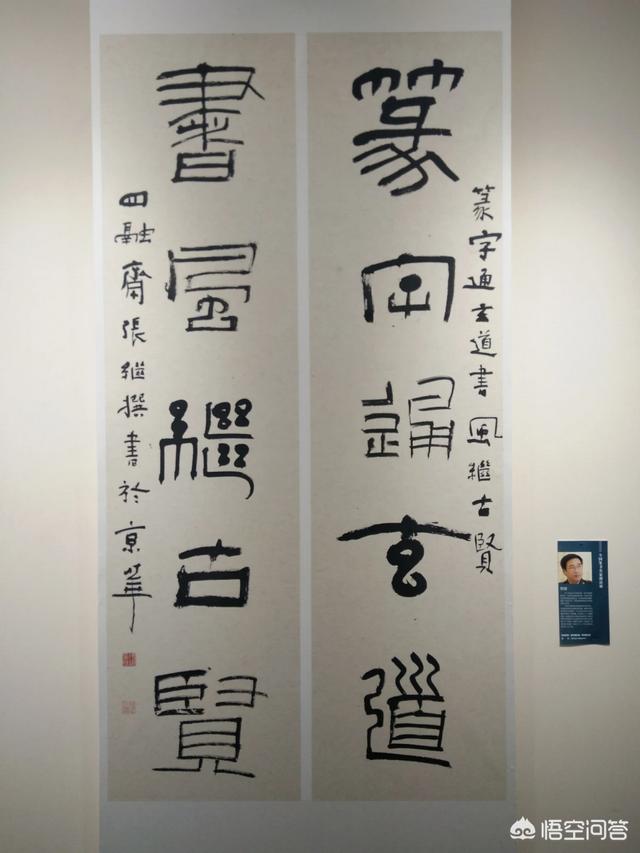 篆字通玄道
篆字通玄道書風繼古賢
書風繼古賢
四融齋張繼撰書於京華
悟空问答